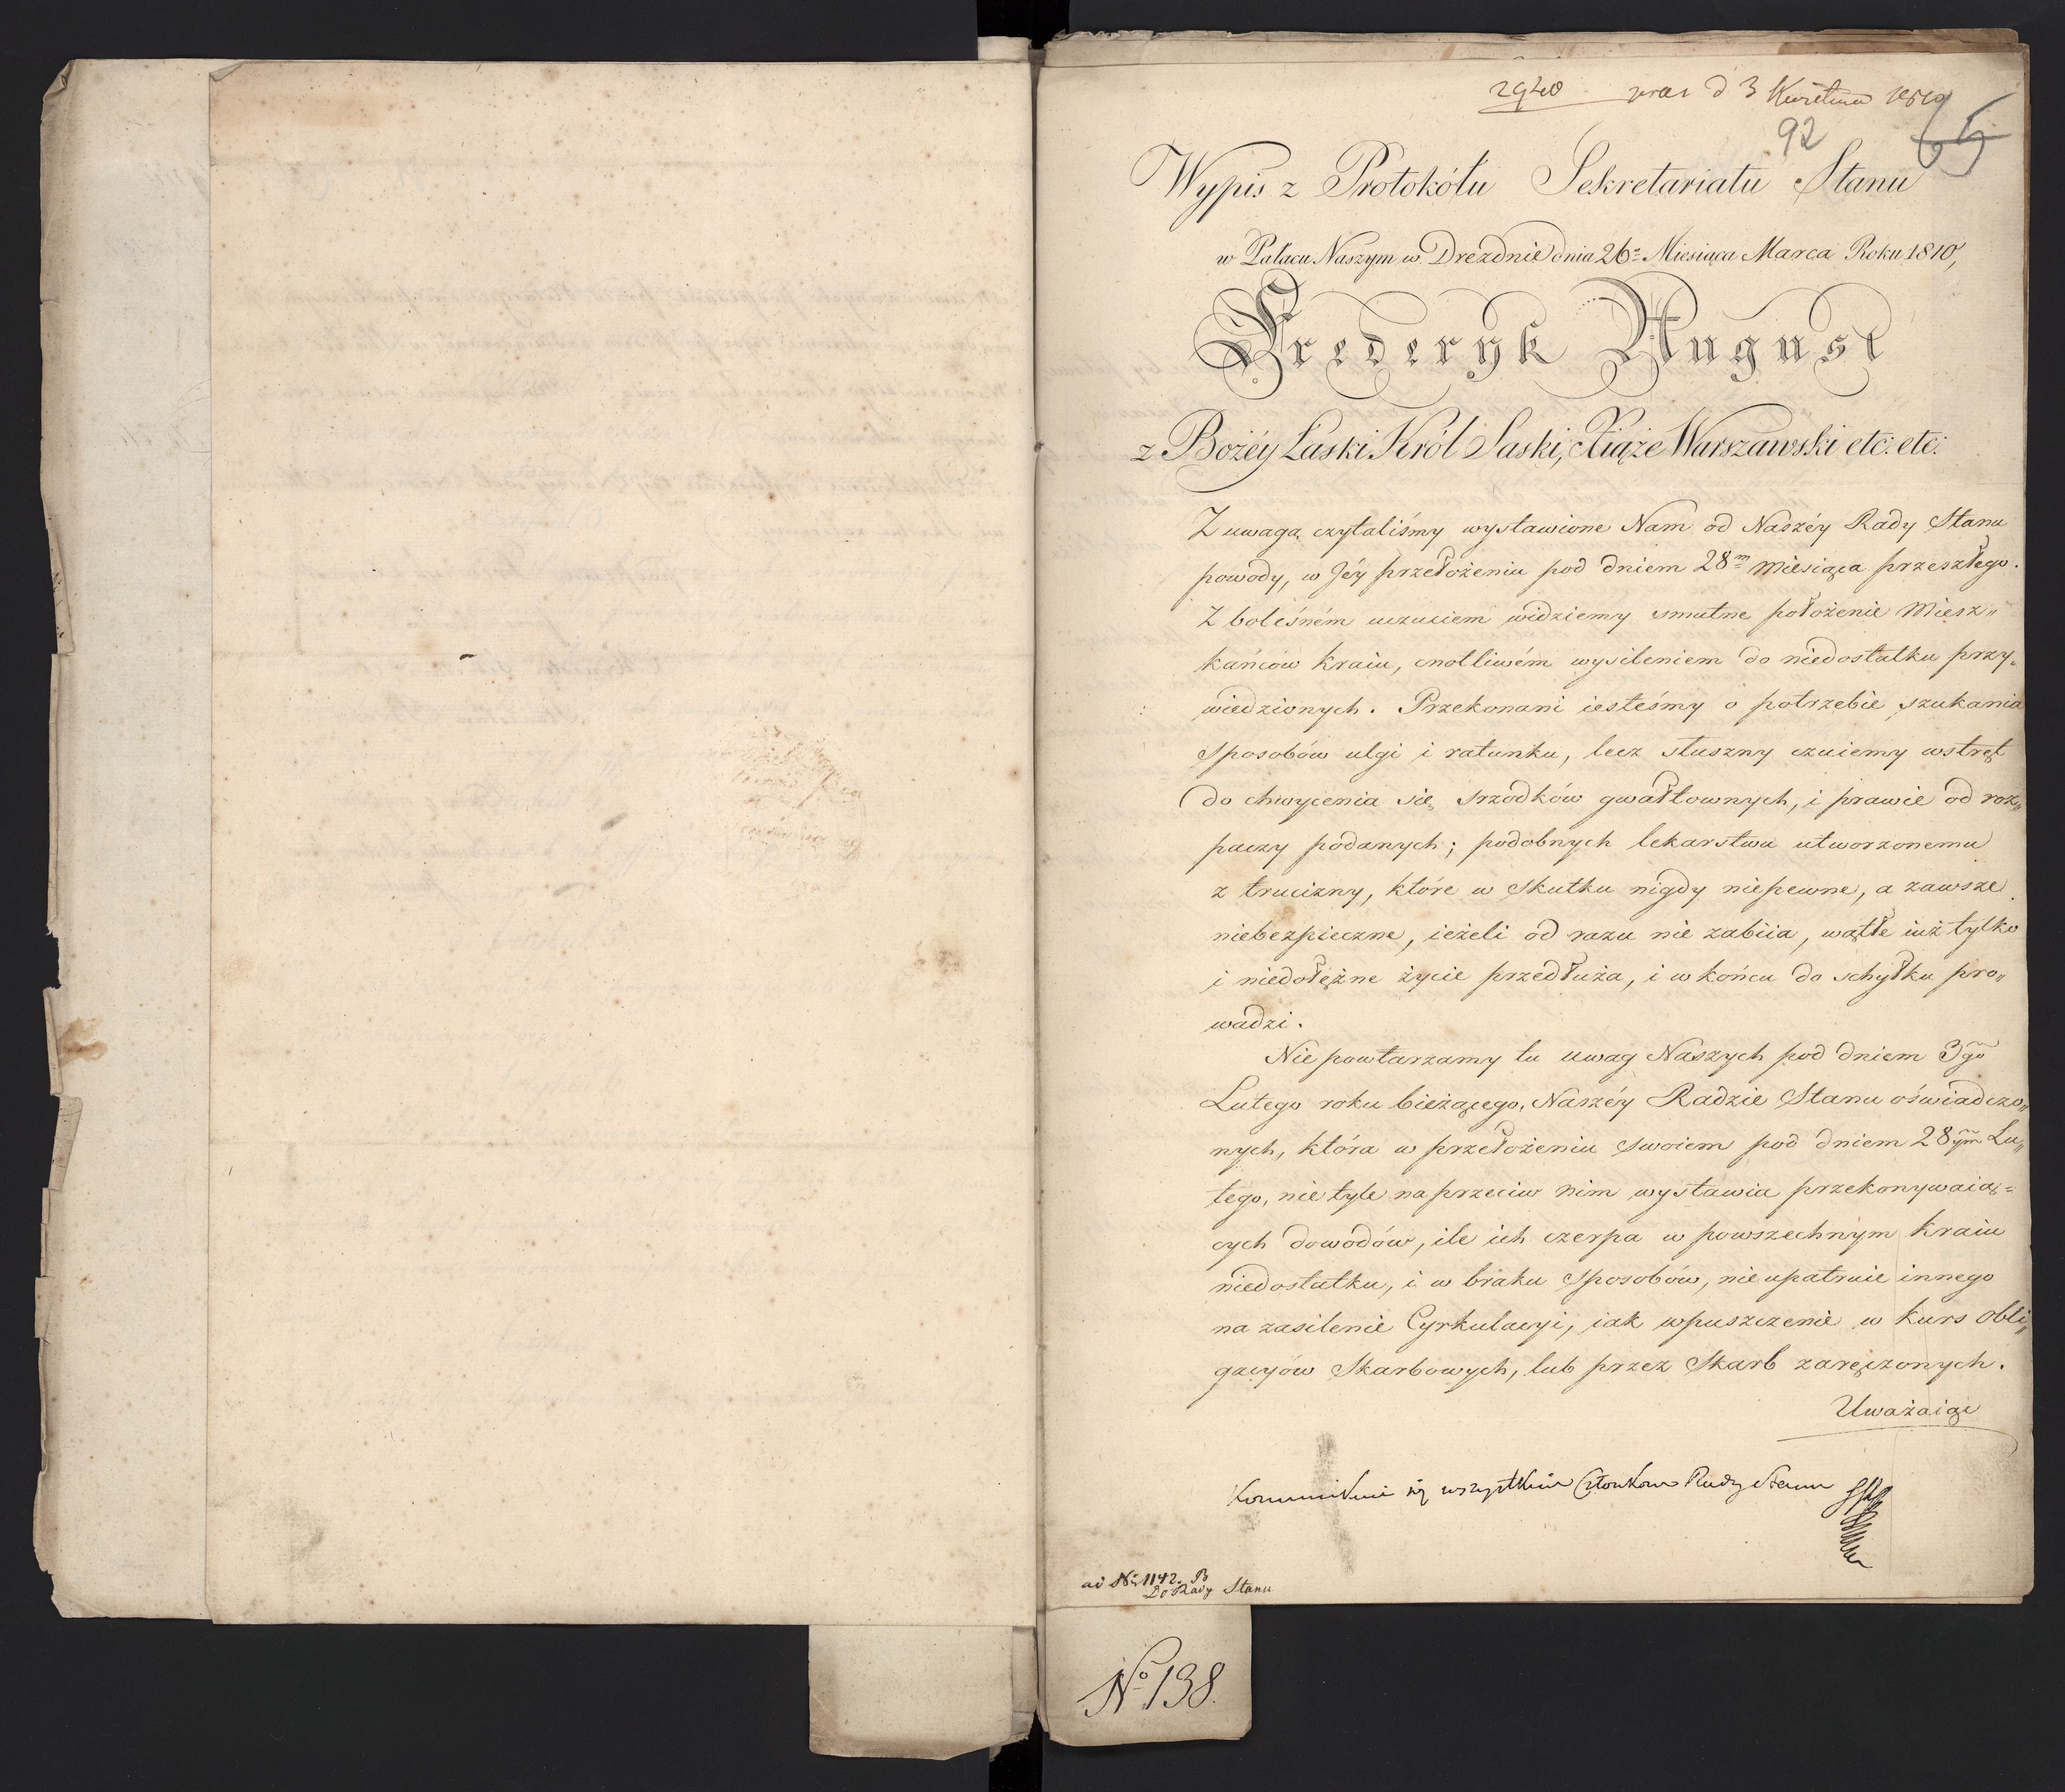 2940 praes d 3 Kwietnia 1810
92 65
Wypis z Protokółu Sekretariatu Stanu
w Pałacu Naszym w Dreznie dnia 26o Miesiąca Marca Roku 1810,
Frederyk August
z Bożéy Łaski Król Saski, Xiąże Warszawski etc: etc:
Z uwagą czytaliśmy wystawione Nam od Naszéy Rady Stanu
powody, w Jéy przełożeniu pod dniem 28m miesiąca przeszłego.
Z boleśném uczuciem widziemy smutne położenie Miesz„
kańców kraiu, cnotliwém wysileniem do niedostatku przy„
wiedzionych. Przekonani iesteśmy o potrzebie szukania
sposobów ulgi i ratunku, lecz słuszny czuiemy wstręt
do chwycenia się srzodków gwałtownych, i prawie od roz„
paczy podanych; podobnych lekarstwu utworzonemu
z trucizny, które w skutku nigdy niepewne, a zawsze
niebezpieczne, ieżeli od razu nie zabiia, wątłe iuż tylko
i niedołężne życie przedłuża, i w końcu do schyłku pro„
wadzi.
Nie powtarzamy tu uwag Naszych pod dniem 3go
Lutego roku bieżącego, Naszéy Radzie Stanu oświadczo„
nych, która w przełożeniu swoiem pod dniem 28ym Lu„
tego, nie tyle naprzeciw nim wystawia przekonywaią=
cych dowodów, ile ich czerpa w powszechnym kraiu
niedostatku, i w braku sposobów, nie upatruie innego
na zasilenie Cyrkulacyi, iak wpuszczenie w kurs obli„
gacyów Skarbowych, lub przez Skarb zaręczonych.
Uważaiąc
Kommunikuie się wszystkim Członkom Rady Stanu
ad No 1142. B
Do Rady Stanu
No 138.